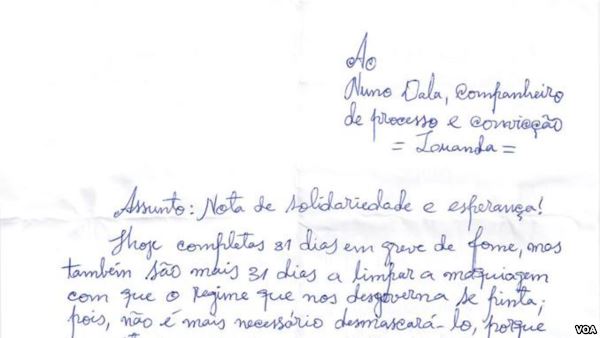 Ao
Nuno Dala, companheiro
de processo e convicção
= Louanda =
Assunto: Nota de solidariedade e esperança!
Hoje completas 31 dias em greve de fome, mas
também são mais 31 dias a limpar a maquiagem
com que o Regime que nos desgoverna se pinta;
pois, não é mais necessário desmascará-lo, porque
VOA